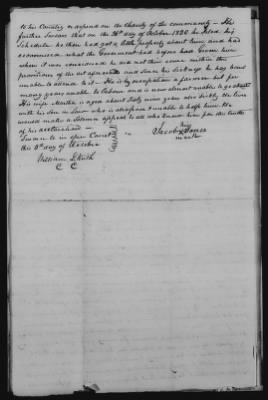 to his Country or depend on the Charity of the community — He
further Swears that on the day of October 1820 he filed his
Schedule he then had got a little property about him and had
what the Government had before had Given him
when it was considered he did not then come within the
provisions of the act and Since his Sickness he has been
unable to attend to it — He is by occupation a farmer but for
many years unable to labour and is now almost unable to go about
His wife Martha is aged about Sixty nine years also Sickly he lives
with his Son in Law who is & unable to help him He
would make a Solemn appeal to all who know him for the truth
of his declaration —
Sworn to in open Court
this 8th day of October
his
Jacob Jones
mark
William S. Ruth
C C